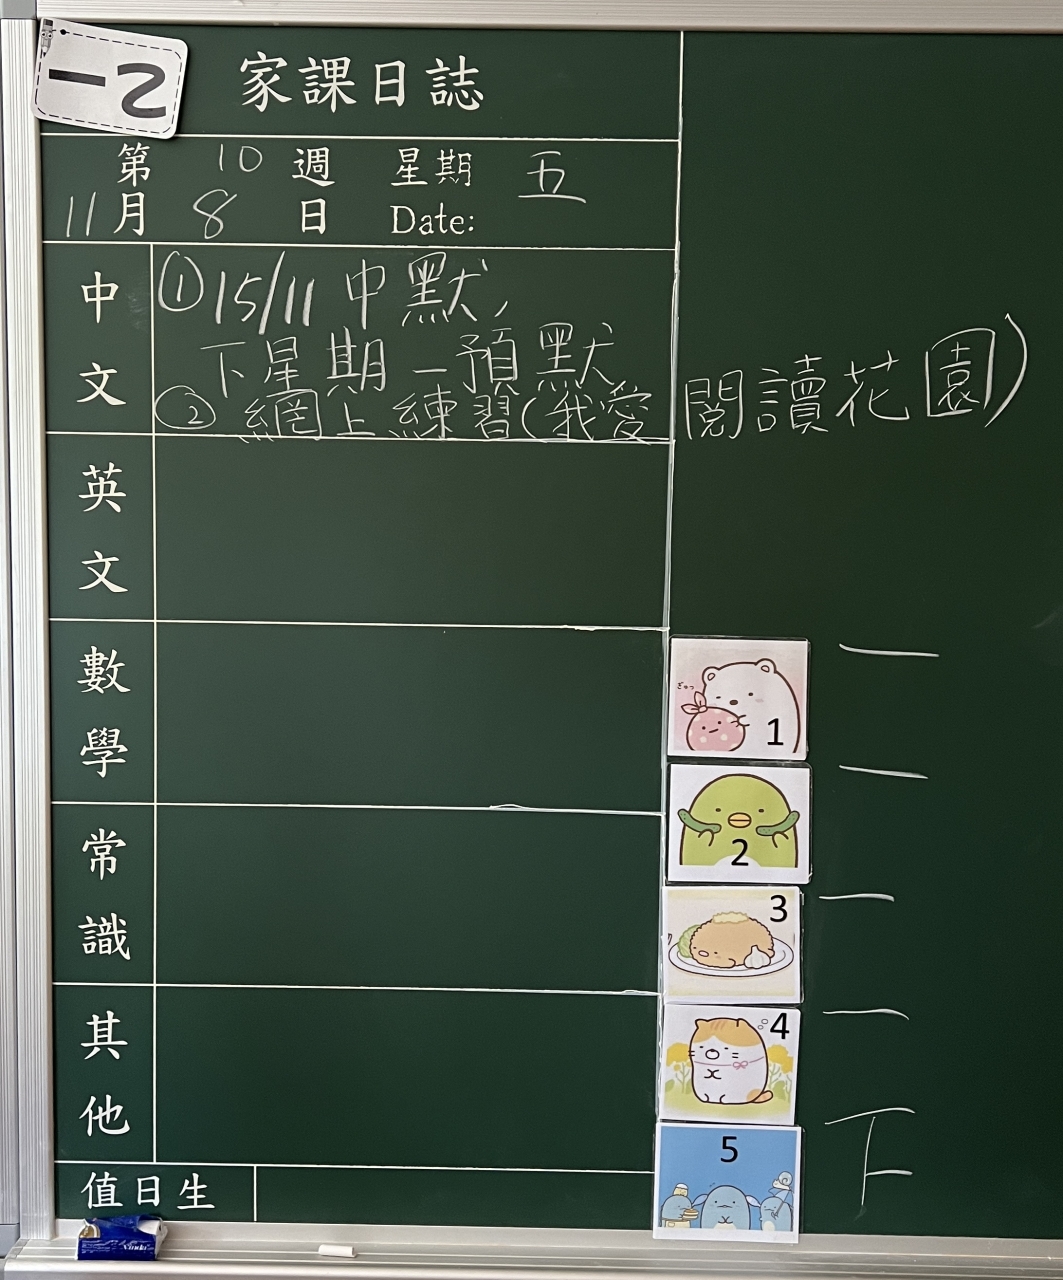 一乙
家課日誌
第 10 週 星期 五
11月 8 日 Date:
中文
①15/11 中默,
下星期一預默
②網上練習(我愛閱讀花園)
英文
數學
常識
其他
值日生
ぎゅっ
1 一
2 一
3 一
4 一
5 下
Vinda